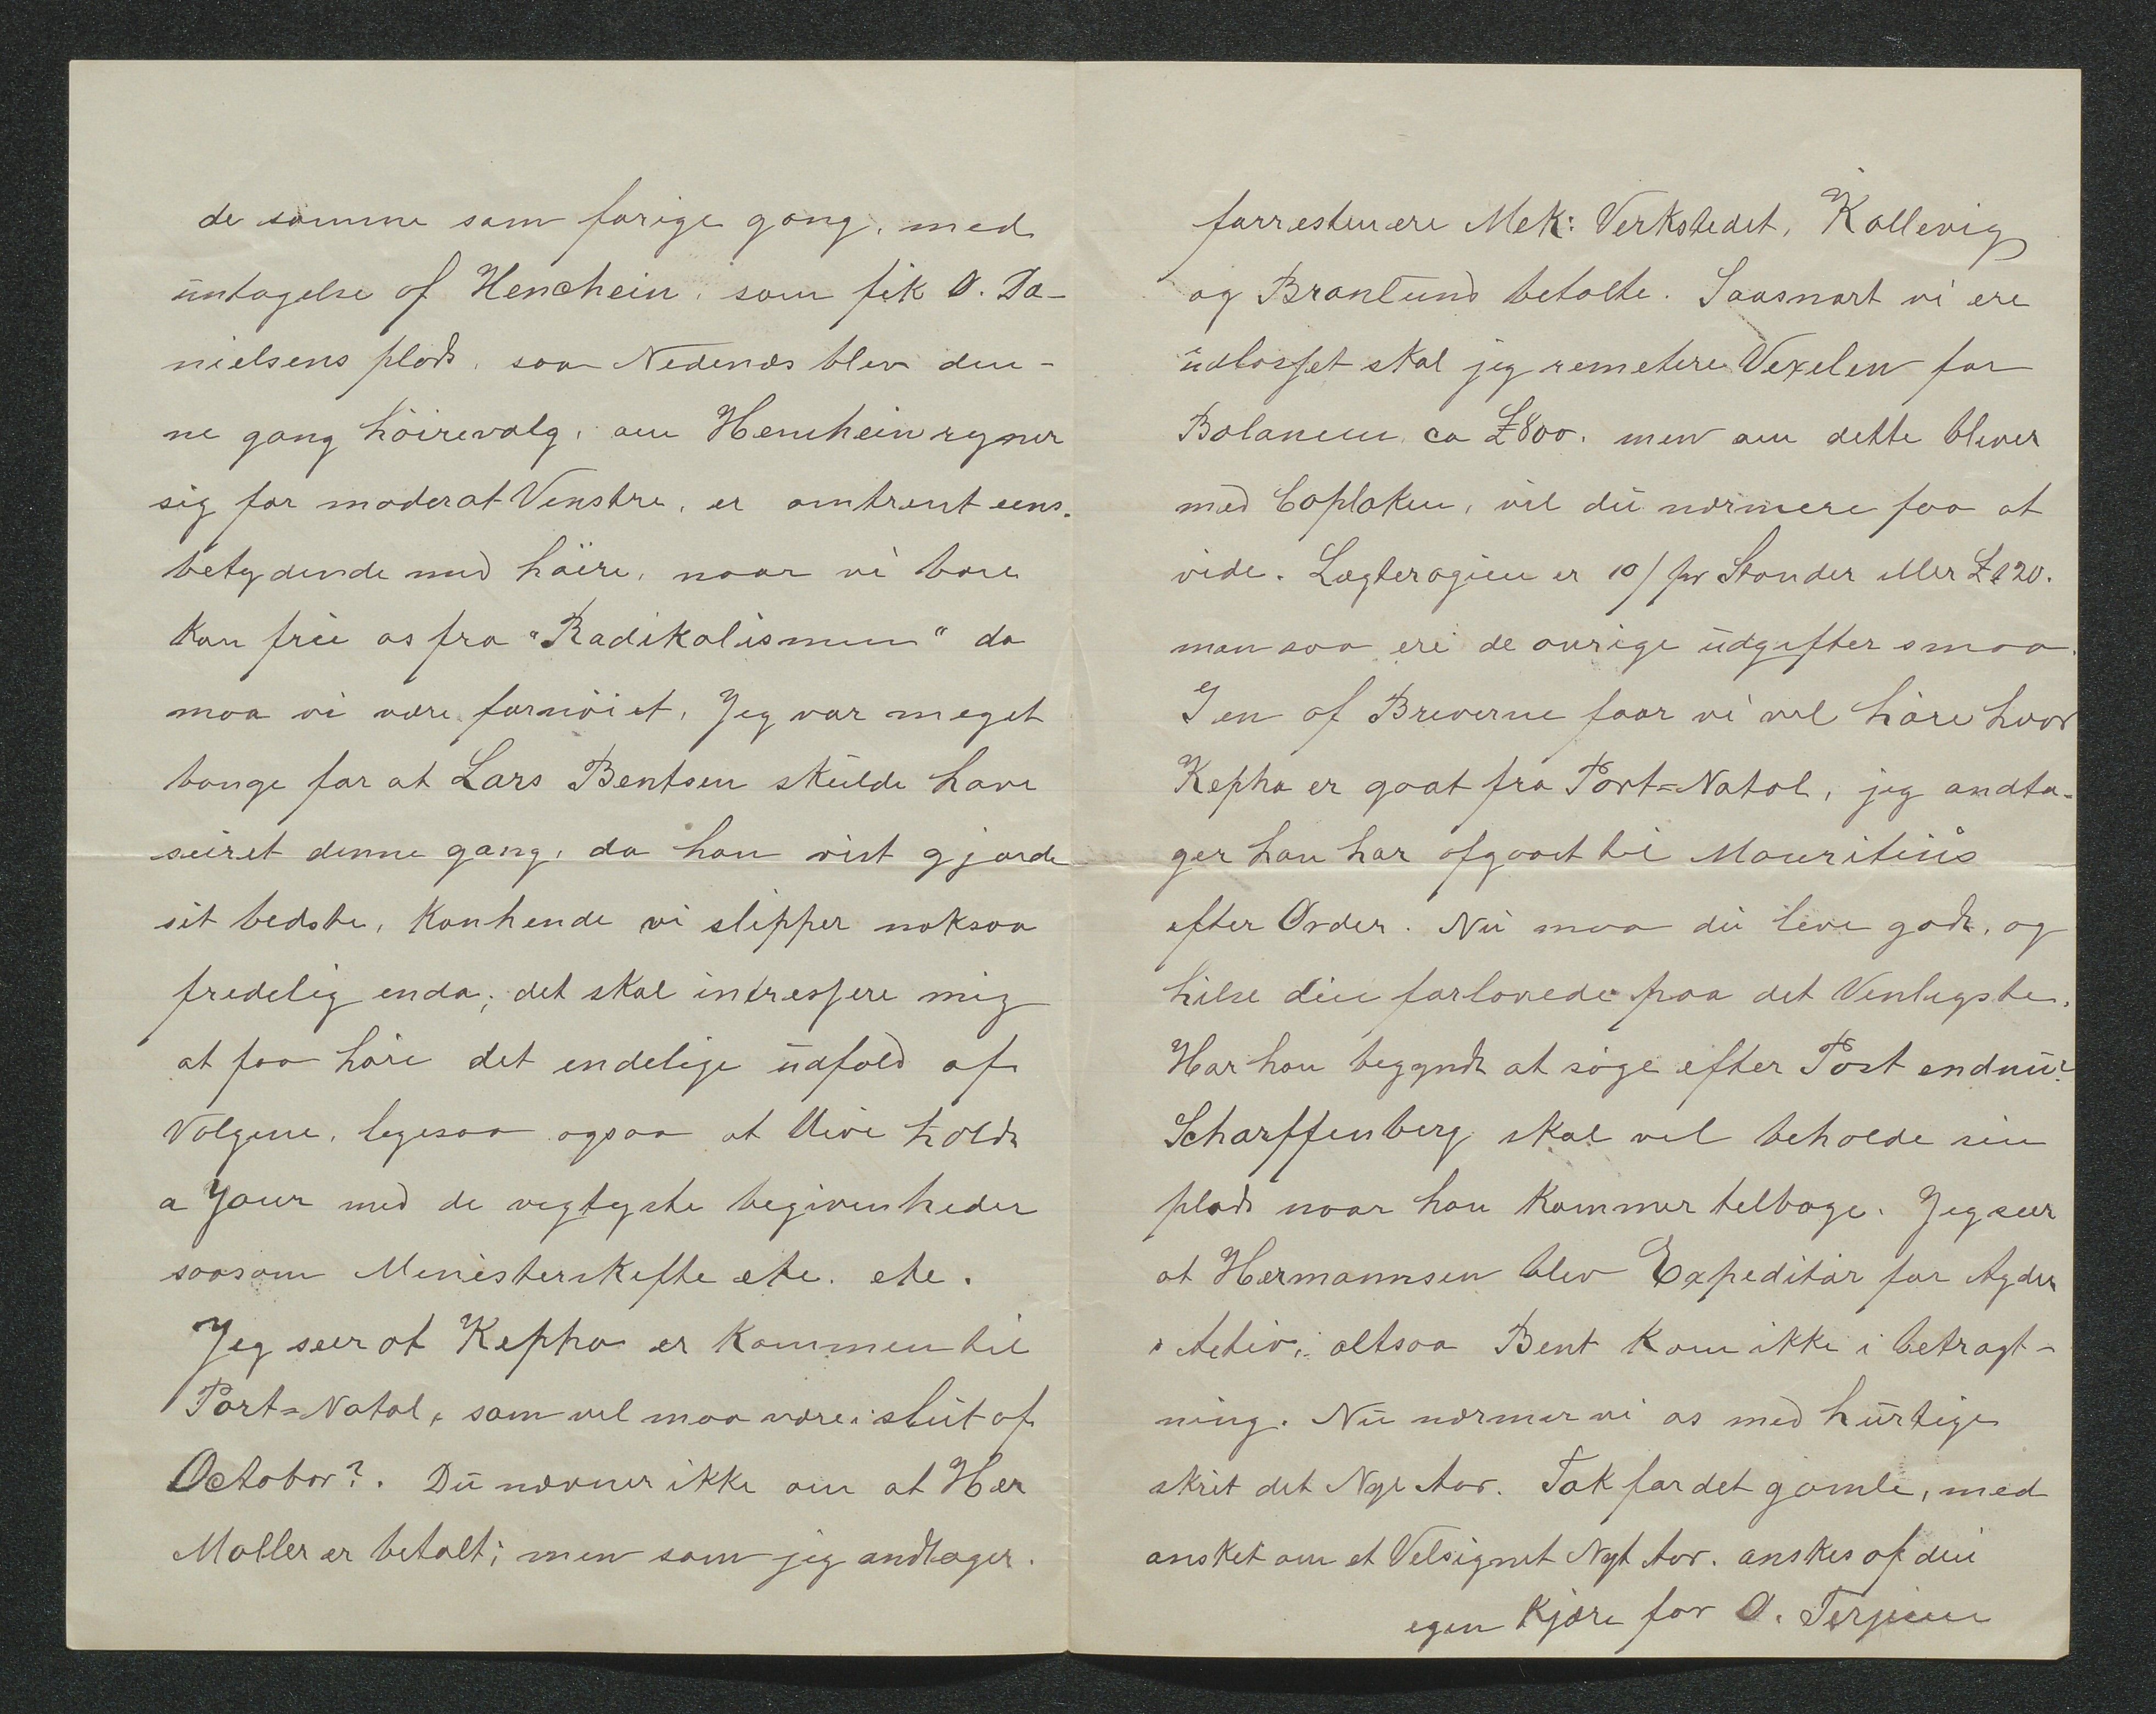 de samme som forige gang, med
untagelse af Henchein, som fik O. Da-
nielsens plads, saa Nedenæs blev den-
ne gang höirevalg, om Henchein regner
sig for moderat Venstre, er omtrent eens-
betydende med höire, naar vi bare
kan frie os fra "Radikalismen" da
maa vi være fornöiet, Jeg var meget
bange for at Lars Bentsen skulde have
seiret denne gang, da han vist gjorde
sit bedste, kanhende vi slipper noksaa
fredelig enda; det skal intressere mig
at faa höre det endelige udfald af
Valgene, legesaa ogsaa at blive holdt
a Jour med de vegtigste begivenheder
saasom Menisterskifte etc. etc.
Jeg seer at Kepha er kommen til
Port-Natal, som vel maa være i slut af
October?. Du nævner ikke om at Hær
Møller er betalt; men som jeg andtager.
forresten ere Mek: Verkstedet, Kallevig
og Branlund betalte. Saasnart vi ere
udlosset skal jeg remetere Vexelen for
Balancen ca £800. men om dette bliver
med Caplaken, vil du nærmere faa at
vide. Lægteragien er 10/ pr Stander eller £120.
men saa ere de øvrige udgifter smaa.
I en af Breverne faar vi vel høre hvor
Kepha er gaat fra Port-Natal, jeg andta-
ger han har afgaaet til Mauritius
efter Order. Nu maa du leve godt, og
hilse din forlovede paa det Venligste.
Har han begyndt at söge efter Post endnu?
Scharffenberg skal vel beholde sin
plads naar han kommer telbage. Jeg seer
at Hermannsen blev Expeditør for Agder
 altsaa Bent kom ikke i betragt-
ning. Nu nærmer vi os med hurtige
skrit det Nye Aar. Tak for det gamle, med
ønsket om et Velsignet Nyt Aar. ønskes af din
egen kjære far O. Terjesen